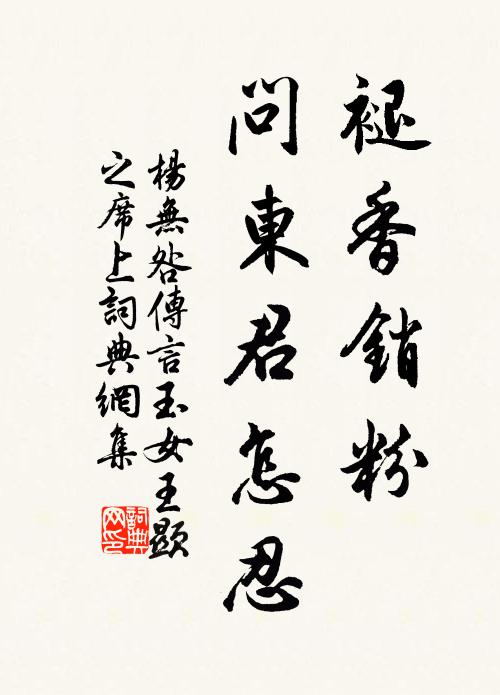 褪香銷粉
問東君怎忍
楊無咎傳言玉女王顯
之席上詞典網集
詞典网印